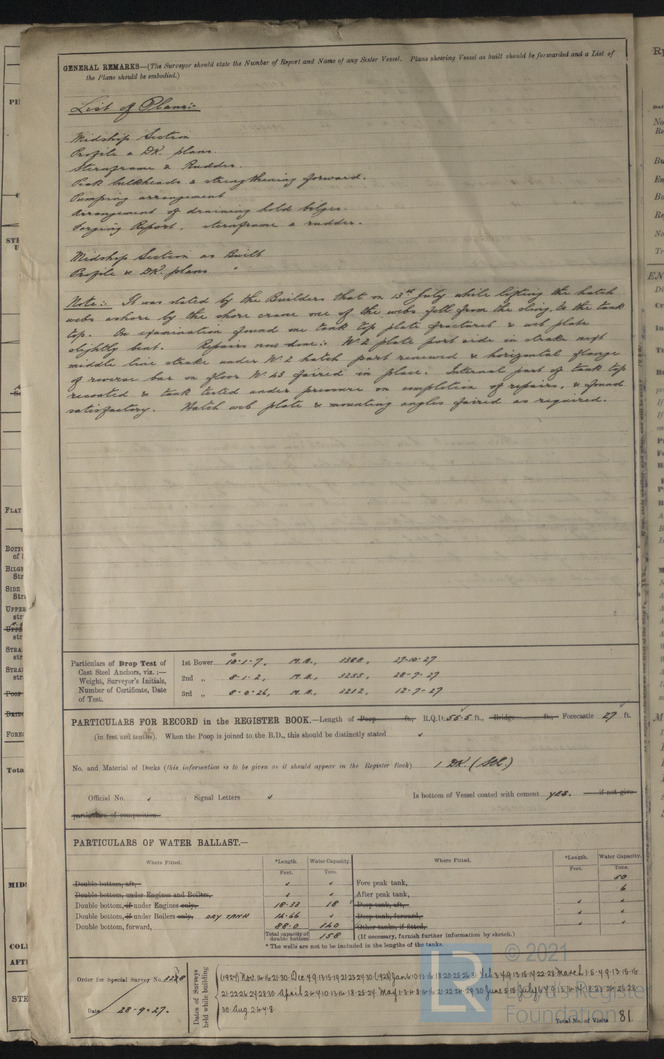 GENERAL REMARKS—(The Surveyor should state the Number of Report and Name of any Sister Vessel. Plans showing Vessel as built should be forwarded and a List of
the Plans should be embodied.)
List of Plans:-
Midship Section
Profile & DK. plans.
Sternframe & Rudder.
Peak bulkheads & strengthening forward.
Pumping arrangement
Arrangement of draining hold bilges.
Forging Report, sternframe & rudder.
Midship Section as Built
Profile & DK. plans "
Note:- It was stated by the Builders that on 13th July while lifting the hatch
webs ashore by the shore crane one of the webs fell from the sling, to the tank
top. On examination found one tank top plate fractured & web plate
slightly bent. Repairs now done:- No 2 plate port side in strake next
middle line strake under No 2 hatch part renewed & horizontal flange
of reverse bar on floor No 43 faired in place. Internal part of tank top
recoated & tank tested under pressure on completion of repairs, & found
satisfactory. Hatch web plate & mounting angles faired as required.
Particulars of Drop Test of
Cast Steel Anchors, viz.:—
Weight, Surveyor's Initials,
Number of Certificate, Date
of Test.
1st Bower 10-1-7, 27-10-27
2nd „ 8-1-2, 28-7-27
3rd „ 1212, 12-7-27
PARTICULARS FOR RECORD in the REGISTER BOOK.—Length of Poop ft., R.Q.D. 55.5 ft., Bridge ft., Forecastle 27 ft.
(in feet and tenths). When the Poop is joined to the B.D., this should be distinctly stated
No. and Material of Decks (this information is to be given as it should appear in the Register Book) 1 DK. (Stl)
Official No. Signal Letters Is bottom of Vessel coated with cement yes. if not give
particulars of composition
PARTICULARS OF WATER BALLAST.—
Where Fitted. *Length. Water Capacity. Where Fitted. *Length. Water Capacity.
Feet. Tons. Feet. Tons.
Double bottom, aft, Fore peak tank, 50
Double bottom, under Engines and Boilers, After peak tank, 6
Double bottom, if under Engines only, 18.33 18 Deep tank, aft,
Double bottom, if under Boilers only, DRY TANK 14.66 Deep tank, forward,
Double bottom, forward, 88.0 140 Other tanks, if fitted,
Total capacity of double bottom 158 (If necessary, furnish further information by sketch.)
* The wells are not to be included in the lengths of the tanks.
Order for Special Survey No.
Date 28-9-27.
Dates of Surveys
held while building
Total No. of Visits 81
© 2021
Lloyd's Register
Foundation